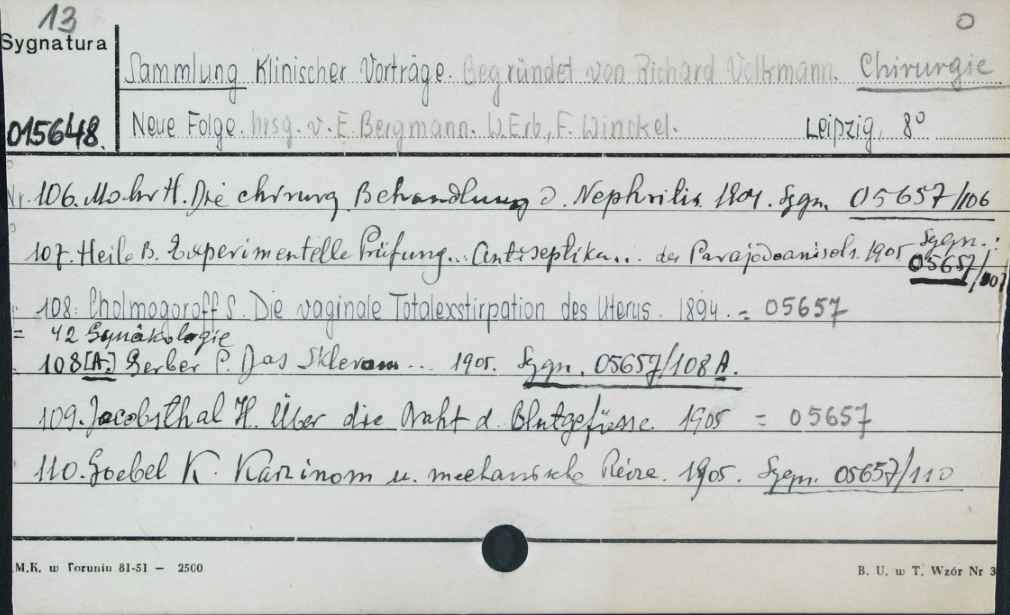 13 0
Sygnatura
Sammlung Klinischer Vorträge. Begründet von Richard Volkmann. Chirurgie
015648. Neue Folge. hrsg. v. E. Bergmann. W. Erb, F. Winckel. Leipzig, 8°
Nr. 106. Mohr H. Die chirurg. Behandlung d. Nephritis. 1904. Sygn. 05657/106
107. Heile B. Experimentelle Prüfung... Antiseptika... des Parajodoanisols. 1905 Sygn.: 05657/107
108. Cholmogoroff S. Die vaginale Totalexstirpation des Uterus. 1894. = 05657
= 42 Gynäkologie
108[A.] Gerber P. Das Sklerom... 1905. Sygn. 05657/108A.
109. Jacobsthal H. Über die Naht d. Blutgefässe. 1905 = 05657
110. Goebel K. Karzinom u. mechanische Reize. 1905. Sygn. 05657/110
M.K. w Toruniu 81-51 — 2500 B. U. w T. Wzór Nr 3